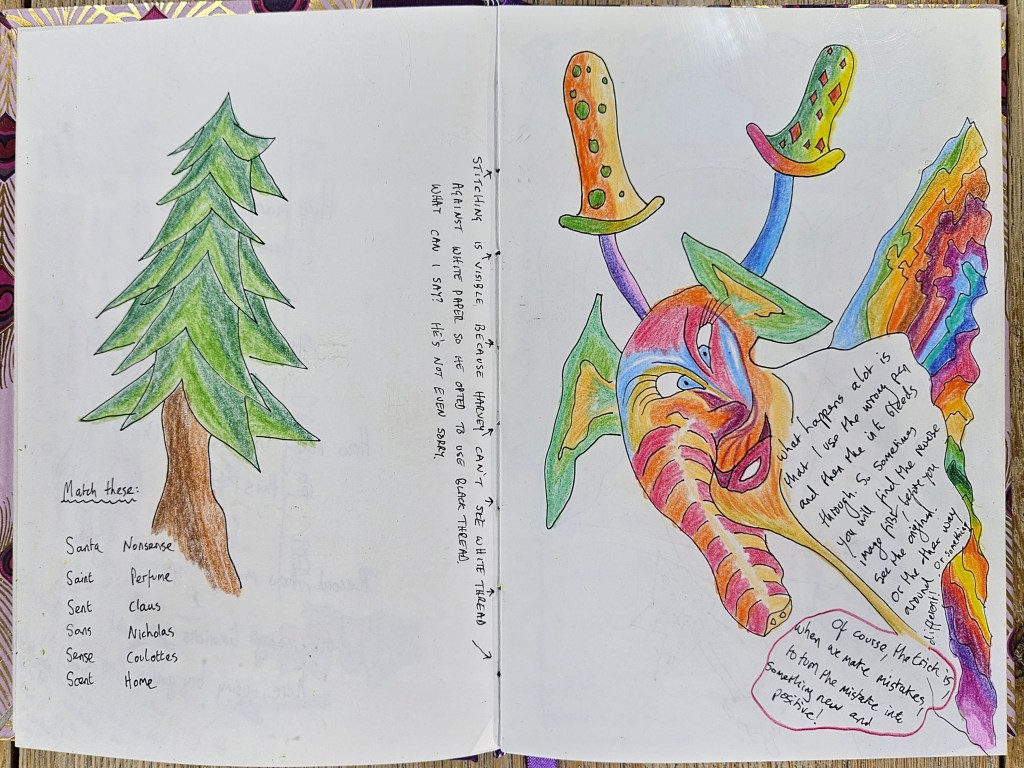 Match these:
Santa Nonsense
Saint Perfume
Sent Claus
Sans Nicholas
Sense Coulottes
Scent Home
STITCHING IS VISIBLE BECAUSE HARVEY CAN'T SEE WHITE THREAD
AGAINST WHITE PAPER SO HE OPTED TO USE BLACK THREAD.
WHAT CAN I SAY? HE'S NOT EVEN SORRY.
What happens a lot is
that I use the wrong pen
and then the ink bleeds
through. So sometimes
you will find the reverse
image first, before you
see the original.
Or the other way
around or something
different!
Of course, the trick is,
when we make mistakes,
to turn the mistake into
something new and
positive!